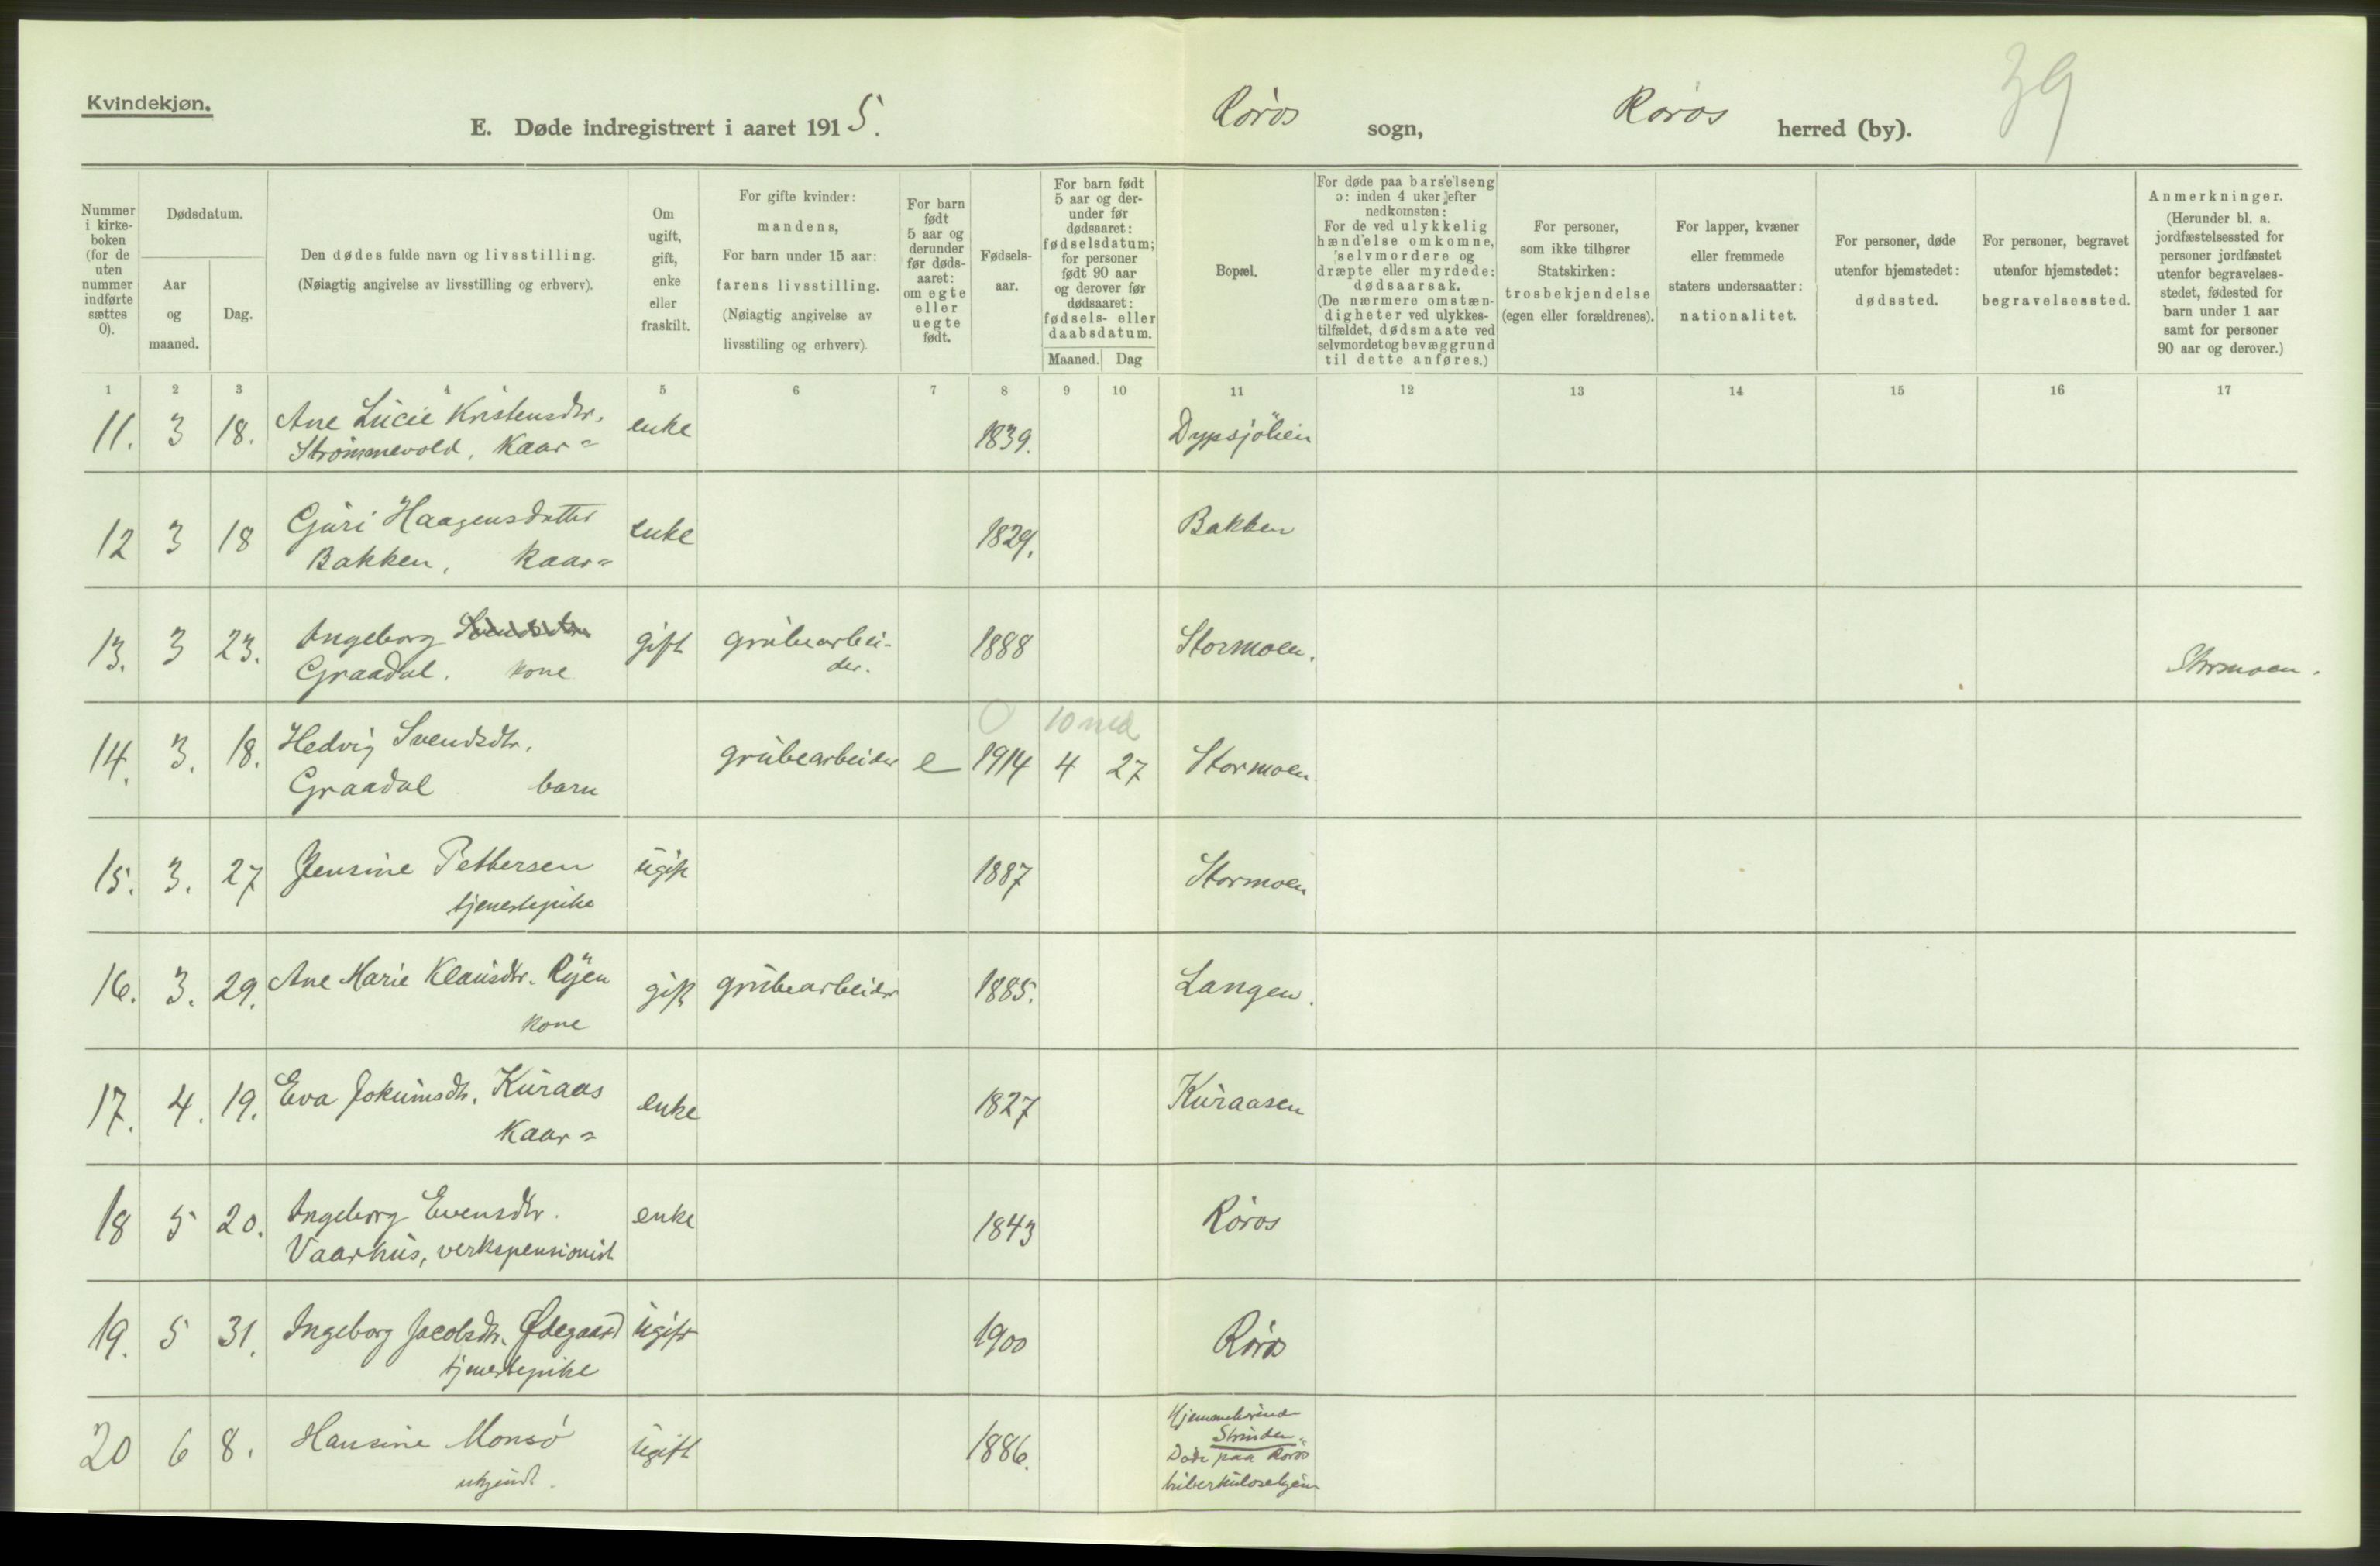 Kvindekjøn.
E. Døde indregistrert i aaret 1915.
Røros sogn, Røros herred (by).
39
Nummer i kirkeboken (for de uten nummer indførte sættes 0).
Dødsdatum.
Aar og maaned.
Dag.
Den dødes fulde navn og livsstilling.
(Nøiagtig angivelse av livsstilling og erhverv).
Om ugift, gift, enke eller fraskilt.
For gifte kvinder: mandens,
For barn under 15 aar: farens livsstilling.
(Nøiagtig angivelse av livsstiling og erhverv).
For barn født 5 aar og derunder før dødsaaret: om egte eller uegte født.
Fødselsaar.
For barn født 5 aar og derunder før dødsaaret: fødselsdatum; for personer født 90 aar og derover før dødsaaret: fødsels- eller daabsdatum.
Maaned. Dag
Bopæl.
For døde paa barselseng ɔ: inden 4 uker efter nedkomsten:
For de ved ulykkelig hændelse omkomne, selvmordere og dræpte eller myrdede: dødsaarsak.
(De nærmere omstændigheter ved ulykkestilfældet, dødsmaate ved selvmordet og bevæggrund til dette anføres.)
For personer, som ikke tilhører Statskirken: trosbekjendelse (egen eller forældrenes).
For lapper, kvæner eller fremmede staters undersaatter: nationalitet.
For personer, døde utenfor hjemstedet: dødssted.
For personer, begravet utenfor hjemstedet: begravelsessted.
Anmerkninger.
(Herunder bl. a. jordfæstelsessted for personer jordfæstet utenfor begravelsesstedet, fødested for barn under 1 aar samt for personer 90 aar og derover.)
1 2 3 4 5 6 7 8 9 10 11 12 13 14 15 16 17
11. 3 18. Ane Lucie Kristensdtr. enke 1839. Dypsjölien
Strömmevold, Kaar=
12 3 18 Guri Haagensdatter enke 1829. Bakken
Bakken, Kaar=
13. 3 23. Ingeborg gift grubearbei- 1888 Stormoen.
Graadal. kone der. Stormoen.
0 10 md
14. 3. 18. Hedvig Svendsdtr. grubearbeider e 1914 4 27 Stormoen
Graadal barn
15. 3. 27 Jensine Pettersen ugift 1887 Stormoen
tjenestepike
16. 3. 29. Ane Marie Klausdtr. Ryen gift grubearbeider 1885. Langen.
kone
17. 4. 19. Eva Jokumsdtr. Kuraas enke 1827 Kuraasen
Kaar=
18 5 20. Ingeborg Evensdtr. enke 1843 Røros
Vaarhus, verkspensionist
19. 5 31. Ingeborg Jacobsdtr. Ødegaard ugift 1900 Røros
tjenestepike
20 6 8. Hansine Monsö ugift 1886. Hjemmehörende
Strinden.
ukjendt. Døde paa Röros
tuberkulosehjem